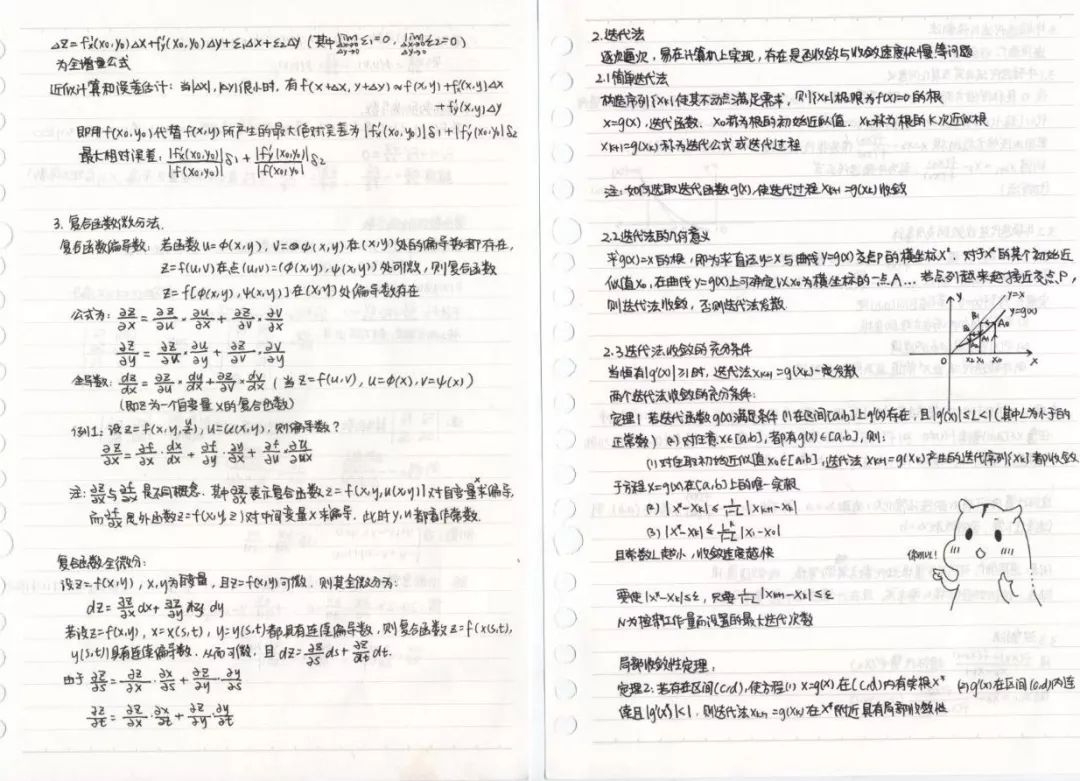 Δz=f'x(x₀,y₀)Δx+f'y(x₀,y₀)Δy+ε₁Δx+ε₂Δy (其中 lim Δx→0 Δy→0 ε₁=0, lim Δx→0 Δy→0 ε₂=0)
为全增量公式
近似计算和误差估计: 当|Δx|,|Δy|很小时, 有 f(x+Δx, y+Δy)≈f(x,y)+f'x(x,y)Δx
+f'y(x,y)Δy
即用f(x₀,y₀)代替f(x,y)所产生的最大绝对误差为|f'x(x₀,y₀)|δ₁+|f'y(x₀,y₀)|δ₂
最大相对误差: |f'x(x₀,y₀)|/|f(x₀,y₀)| δ₁ + |f'y(x₀,y₀)|/|f(x₀,y₀)| δ₂
3. 复合函数微分法.
复合函数偏导数: 若函数u=φ(x,y), v=ψ(x,y)在(x,y)处的偏导数都存在,
z=f(u,v)在点(u,v)=(φ(x,y), ψ(x,y))处可微, 则复合函数
z=f[φ(x,y), ψ(x,y)]在(x,y)处偏导数存在
公式为: ∂z/∂x = ∂z/∂u · ∂u/∂x + ∂z/∂v · ∂v/∂x
∂z/∂y = ∂z/∂u · ∂u/∂y + ∂z/∂v · ∂v/∂y
全导数: dz/dx = ∂z/∂u · du/dx + ∂z/∂v · dv/dx (当z=f(u,v), u=φ(x), v=ψ(x))
(即z为一个自变量x的复合函数)
例1: 设z=f(x,y,u), u=u(x,y), 则偏导数?
∂z/∂x = ∂f/∂x · dx/dx + ∂f/∂y · ∂y/∂x + ∂f/∂u · ∂u/∂x
注: ∂z/∂x与∂f/∂x是不同概念. 其中∂z/∂x表示复合函数z=f(x,y,u(x,y))对自变量x求偏导,
而∂f/∂x是外函数z=f(x,y,z)对中间变量x求偏导, 此时y,u都看作常数.
复合函数全微分:
设z=f(x,y), x,y为自变量, 且z=f(x,y)可微, 则其全微分为:
dz=∂z/∂x dx+∂z/∂y dy
若设z=f(x,y), x=x(s,t), y=y(s,t)都具有连续偏导数, 则复合函数z=f(x(s,t),
y(s,t))具有连续偏导数, 从而可微, 且 dz=∂z/∂s ds+∂z/∂t dt.
由于 ∂z/∂s = ∂z/∂x · ∂x/∂s + ∂z/∂y · ∂y/∂s
∂z/∂t = ∂z/∂x · ∂x/∂t + ∂z/∂y · ∂y/∂t
2.迭代法
逐次逼近, 易在计算机上实现, 存在是否收敛与收敛速度快慢等问题
2.1简单迭代法
构造序列{xk}使其不动点满足需求, 则{xk}极限为f(x)=0的根
x=g(x), 迭代函数. x₀称为根的初始近似值. xk称为根的k次近似根
xk+1=g(xk)称为迭代公式或迭代过程
注: 如何选取迭代函数g(x), 使迭代过程xk+1=g(xk)收敛
2.2迭代法的几何意义
求g(x)=x的根, 即为求直线y=x与曲线y=g(x)交点P的横坐标x*. 对于x*的某个初始近
似值x₀, 在曲线y=g(x)上可确定以x₀为横坐标的一点A... 若点列越来越接近交点P,
则迭代法收敛, 否则迭代法发散.
y
y=x
y=g(x)
B₁
A₀
A₁
0
x₂ x₁ x₀
x
2.3迭代法收敛的充分条件
当恒有|g'(x)|≥1时, 迭代法xk+1=g(xk)一定发散
两个迭代法收敛的充分条件:
定理1 若迭代函数g(x)满足条件 (1)在区间[a,b]上g'(x)存在, 且|g'(x)|≤L<1(其中L为小于1的
正常数) (2)对任意x∈[a,b], 都有g(x)∈[a,b], 则:
(1)对任取初始近似值x₀∈[a,b], 迭代法xk+1=g(xk)产生的迭代序列{xk}都收敛
于方程x=g(x)在[a,b]上的唯一实根
(2) |x*-xk| ≤ 1/(1-L) |xk+1-xk|
(3) |x*-xk| ≤ L^k/(1-L) |x₁-x₀|
且常数L越小, 收敛速度越快
要使|x*-xk|≤ε, 只要 1/(1-L) |xk+1-xk|≤ε
N为控制工作量而设置的最大迭代次数
局部收敛性定理:
定理2: 若存在区间(c,d), 使方程(1) x=g(x)在(c,d)内有实根x* (2) g'(x)在区间(c,d)内连
续且|g'(x)|<1, 则迭代法xk+1=g(xk)在x*附近具有局部收敛性